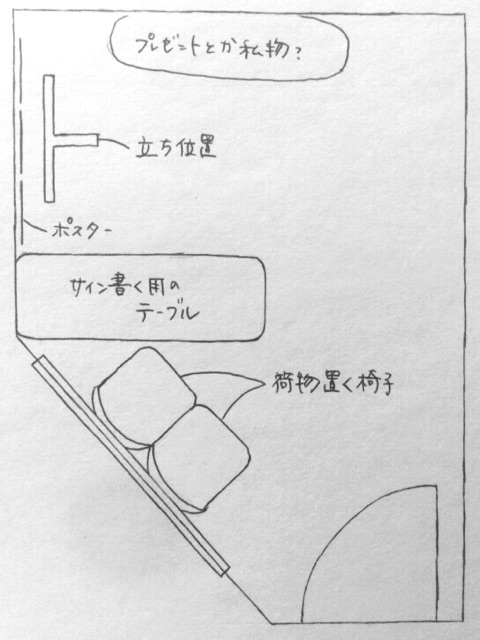 プレゼントとか私物?
立ち位置
ポスター
サイン書く用の
テーブル
荷物置く椅子